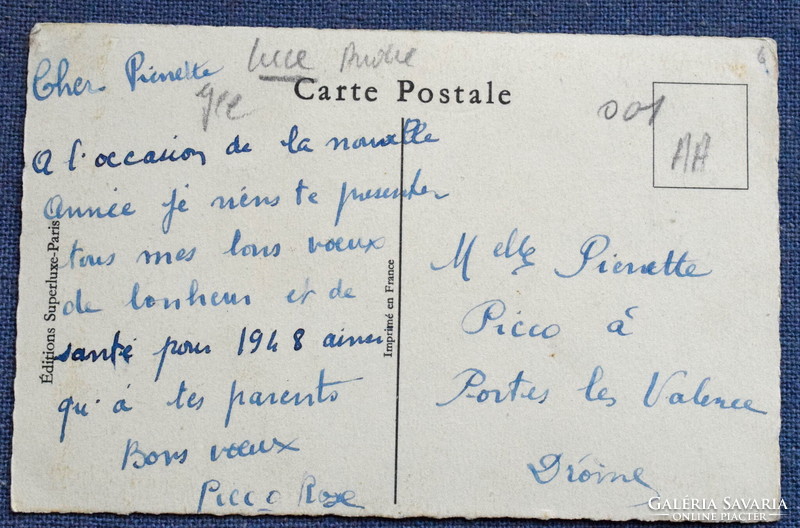 Cher Pierrette
luce
Carte Postale
001
AA
A l'occasion de la nouvelle
Année je viens te presenter
tous mes bons voeux
de bonheur et de
santé pour 1948 ainsi
qu'à tes parents
Bons voeux
Picco Rose
Editions Superluxe-Paris
Imprimé en France
Melle Pierrette
Picco à
Portes les Valence
Drôme
GALÉRIA SAVARIA
ONLINE PIACTÉR